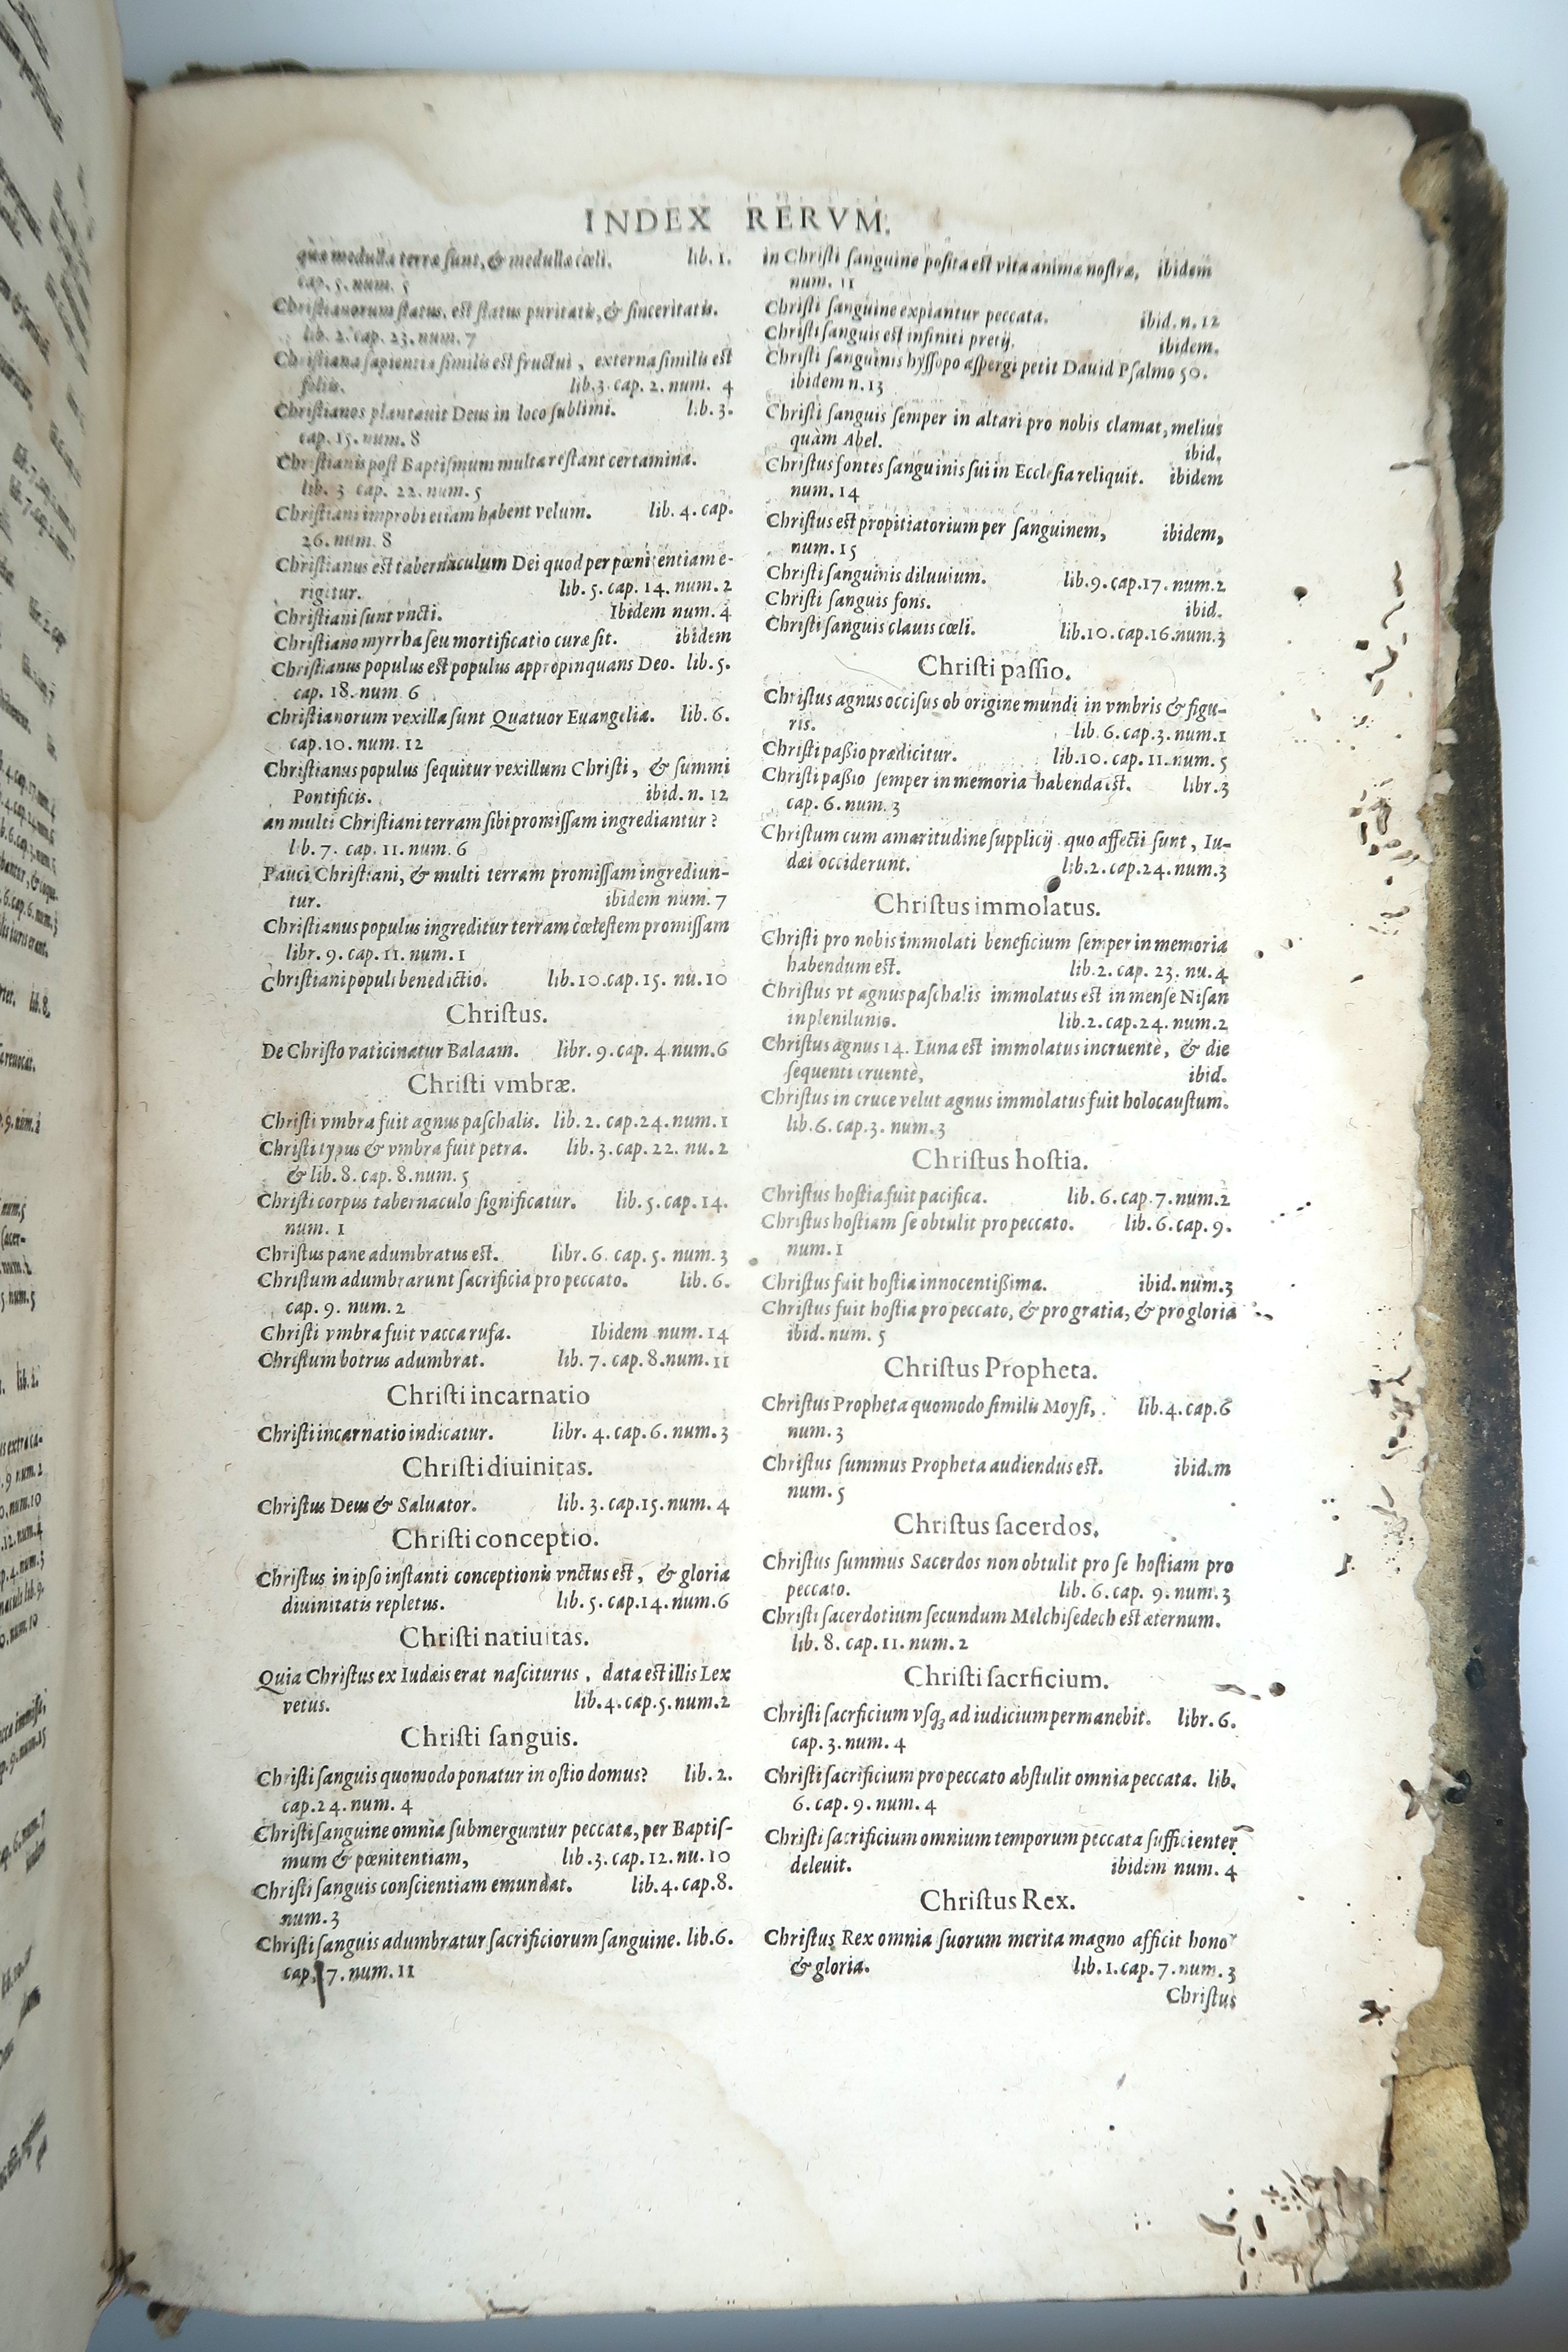 INDEX RERVM.
quæ medulla terræ sunt, & medulla cœli. lib. 1.
cap. 5. num. 5
Christianorum status, est status puritatis, & sinceritatis.
lib. 2. cap. 23. num. 7
Christiana sapientia similis est fructui, externa similis est
foliis. lib. 3. cap. 2. num. 4
Christianos plantauit Deus in loco sublimi. lib. 3.
cap. 15. num. 8
Christianis post Baptismum multa restant certamina.
lib. 3 cap. 22. num. 5
Christiani improbi etiam habent velum. lib. 4. cap.
26. num. 8
Christianus est tabernaculum Dei quod per pœnitentiam e-
rigitur. lib. 5. cap. 14. num. 2
Christiani sunt vncti. Ibidem num. 4
Christiano myrrha seu mortificatio curæ sit. ibidem
Christianus populus est populus appropinquans Deo. lib. 5.
cap. 18. num. 6
Christianorum vexilla sunt Quatuor Euangelia. lib. 6.
cap. 10. num. 12
Christianus populus sequitur vexillum Christi, & summi
Pontificis. ibid. n. 12
an multi Christiani terram sibi promissam ingrediantur?
lib. 7. cap. 11. num. 6
Pauci Christiani, & multi terram promissam ingrediun-
tur. ibidem num. 7
Christianus populus ingreditur terram cœlestem promissam
libr. 9. cap. 11. num. 1
Christiani populi benedictio. lib. 10. cap. 15. nu. 10
Christus.
De Christo vaticinatur Balaam. libr. 9. cap. 4 num. 6
Christi vmbræ.
Christi vmbra fuit agnus paschalis. lib. 2. cap. 24. num. 1
Christi typus & vmbra fuit petra. lib. 3. cap. 22. nu. 2
& lib. 8. cap. 8. num. 5
Christi corpus tabernaculo significatur. lib. 5. cap. 14.
num. 1
Christus pane adumbratus est. libr. 6. cap. 5. num. 3
Christum adumbrarunt sacrificia pro peccato. lib. 6.
cap. 9. num. 2
Christi vmbra fuit vacca rufa. Ibidem num. 14
Christum botrus adumbrat. lib. 7. cap. 8. num. 11
Christi incarnatio
Christi incarnatio indicatur. libr. 4. cap. 6. num. 3
Christi diuinitas.
Christus Deus & Saluator. lib. 3. cap. 15. num. 4
Christi conceptio.
Christus in ipso instanti conceptionis vnctus est, & gloria
diuinitatis repletus. lib. 5. cap. 14. num. 6
Christi natiuitas.
Quia Christus ex Iudæis erat nasciturus, data est illis Lex
vetus. lib. 4. cap. 5. num. 2
Christi sanguis.
Christi sanguis quomodo ponatur in ostio domus? lib. 2.
cap. 24. num. 4
Christi sanguine omnia submerguntur peccata, per Baptis-
mum & pœnitentiam, lib. 3. cap. 12. nu. 10
Christi sanguis conscientiam emundat. lib. 4. cap. 8.
num. 3
Christi sanguis adumbratur sacrificiorum sanguine. lib. 6.
cap. 7. num. 11
in Christi sanguine posita est vita animæ nostræ, ibidem
num. 11
Christi sanguine expiantur peccata. ibid. n. 12
Christi sanguis est infiniti pretij. ibidem.
Christi sanguinis hyssopo aspergi petit Dauid Psalmo 50.
ibidem n. 13
Christi sanguis semper in altari pro nobis clamat, melius
quàm Abel. ibid.
Christus fontes sanguinis sui in Ecclesia reliquit. ibidem
num. 14
Christus est propitiatorium per sanguinem, ibidem,
num. 15
Christi sanguinis diluuium. lib. 9. cap. 17. num. 2
Christi sanguis fons. ibid.
Christi sanguis clauis cœli. lib. 10. cap. 16. num. 3
Christi passio.
Christus agnus occisus ob origine mundi in vmbris & figu-
ris. lib. 6. cap. 3. num. 1
Christi passio prædicitur. lib. 10. cap. 11. num. 5
Christi passio semper in memoria habenda est. libr. 3
cap. 6. num. 3
Christum cum amaritudine supplicij quo affecti sunt, Iu-
dæi occiderunt. lib. 2. cap. 24. num. 3
Christus immolatus.
Christi pro nobis immolati beneficium semper in memoria
habendum est. lib. 2. cap. 23. nu. 4
Christus vt agnus paschalis immolatus est in mense Nisan
in plenilunio. lib. 2. cap. 24. num. 2
Christus agnus 14. Luna est immolatus incruentè, & die
sequenti cruentè, ibid.
Christus in cruce velut agnus immolatus fuit holocaustum.
lib. 6. cap. 3. num. 3
Christus hostia.
Christus hostia fuit pacifica. lib. 6. cap. 7. num. 2
Christus hostiam se obtulit pro peccato. lib. 6. cap. 9.
num. 1
Christus fuit hostia innocentissima. ibid. num. 3
Christus fuit hostia pro peccato, & pro gratia, & pro gloria
ibid. num. 5
Christus Propheta.
Christus Propheta quomodo similis Moysi, lib. 4. cap. 6
num. 3
Christus summus Propheta audiendus est. ibidem
num. 5
Christus sacerdos.
Christus summus Sacerdos non obtulit pro se hostiam pro
peccato. lib. 6. cap. 9. num. 3
Christi sacerdotium secundum Melchisedech est æternum.
lib. 8. cap. 11. num. 2
Christi sacrficium.
Christi sacrficium vsq; ad iudicium permanebit. libr. 6.
cap. 3. num. 4
Christi sacrificium pro peccato abstulit omnia peccata. lib.
6. cap. 9. num. 4
Christi sacrificium omnium temporum peccata sufficienter
deleuit. ibidem num. 4
Christus Rex.
Christus Rex omnia suorum merita magno afficit hono
& gloria. lib. 1. cap. 7. num. 3
Christus